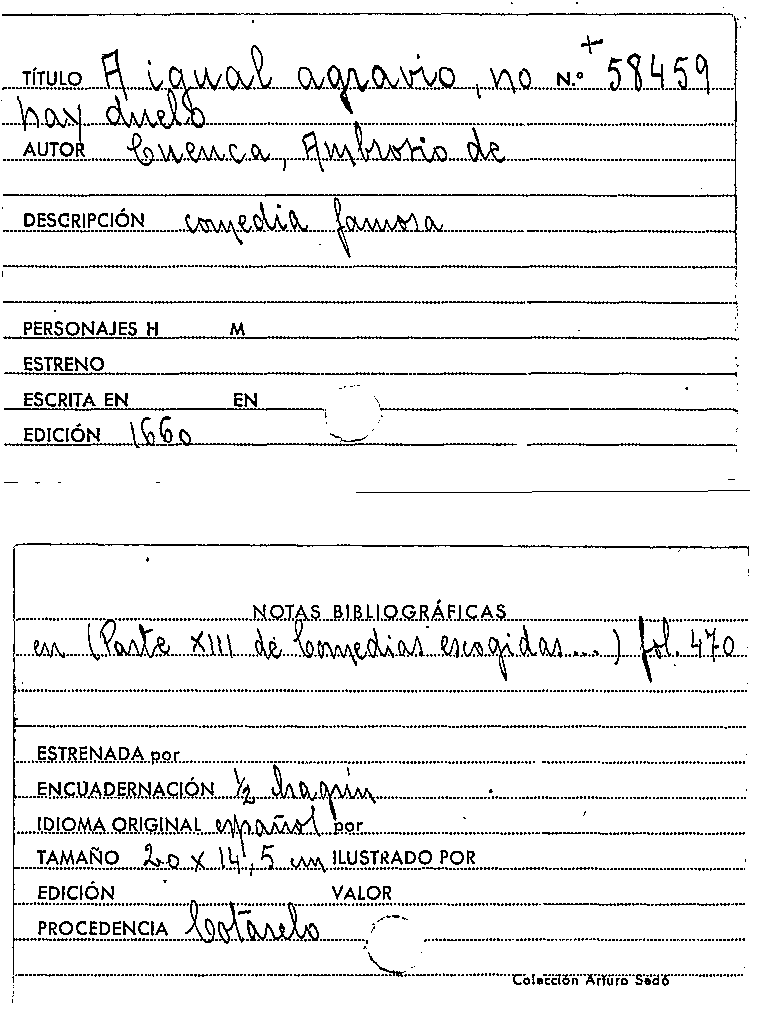 TÍTULO A igual agravio, no N.º + 58459
hay duelo
AUTOR Cuenca, Ambrosio de
DESCRIPCIÓN comedia famosa
PERSONAJES H M
ESTRENO
ESCRITA EN EN
EDICIÓN 1660
NOTAS BIBLIOGRÁFICAS
en (Parte XIII de Comedias escogidas...) fol. 470
ESTRENADA por
ENCUADERNACIÓN ½ chagrín
IDIOMA ORIGINAL español por
TAMAÑO 20 x 14,5 cm ILUSTRADO POR
EDICIÓN VALOR
PROCEDENCIA Cotarelo
Colección Arturo Sedó